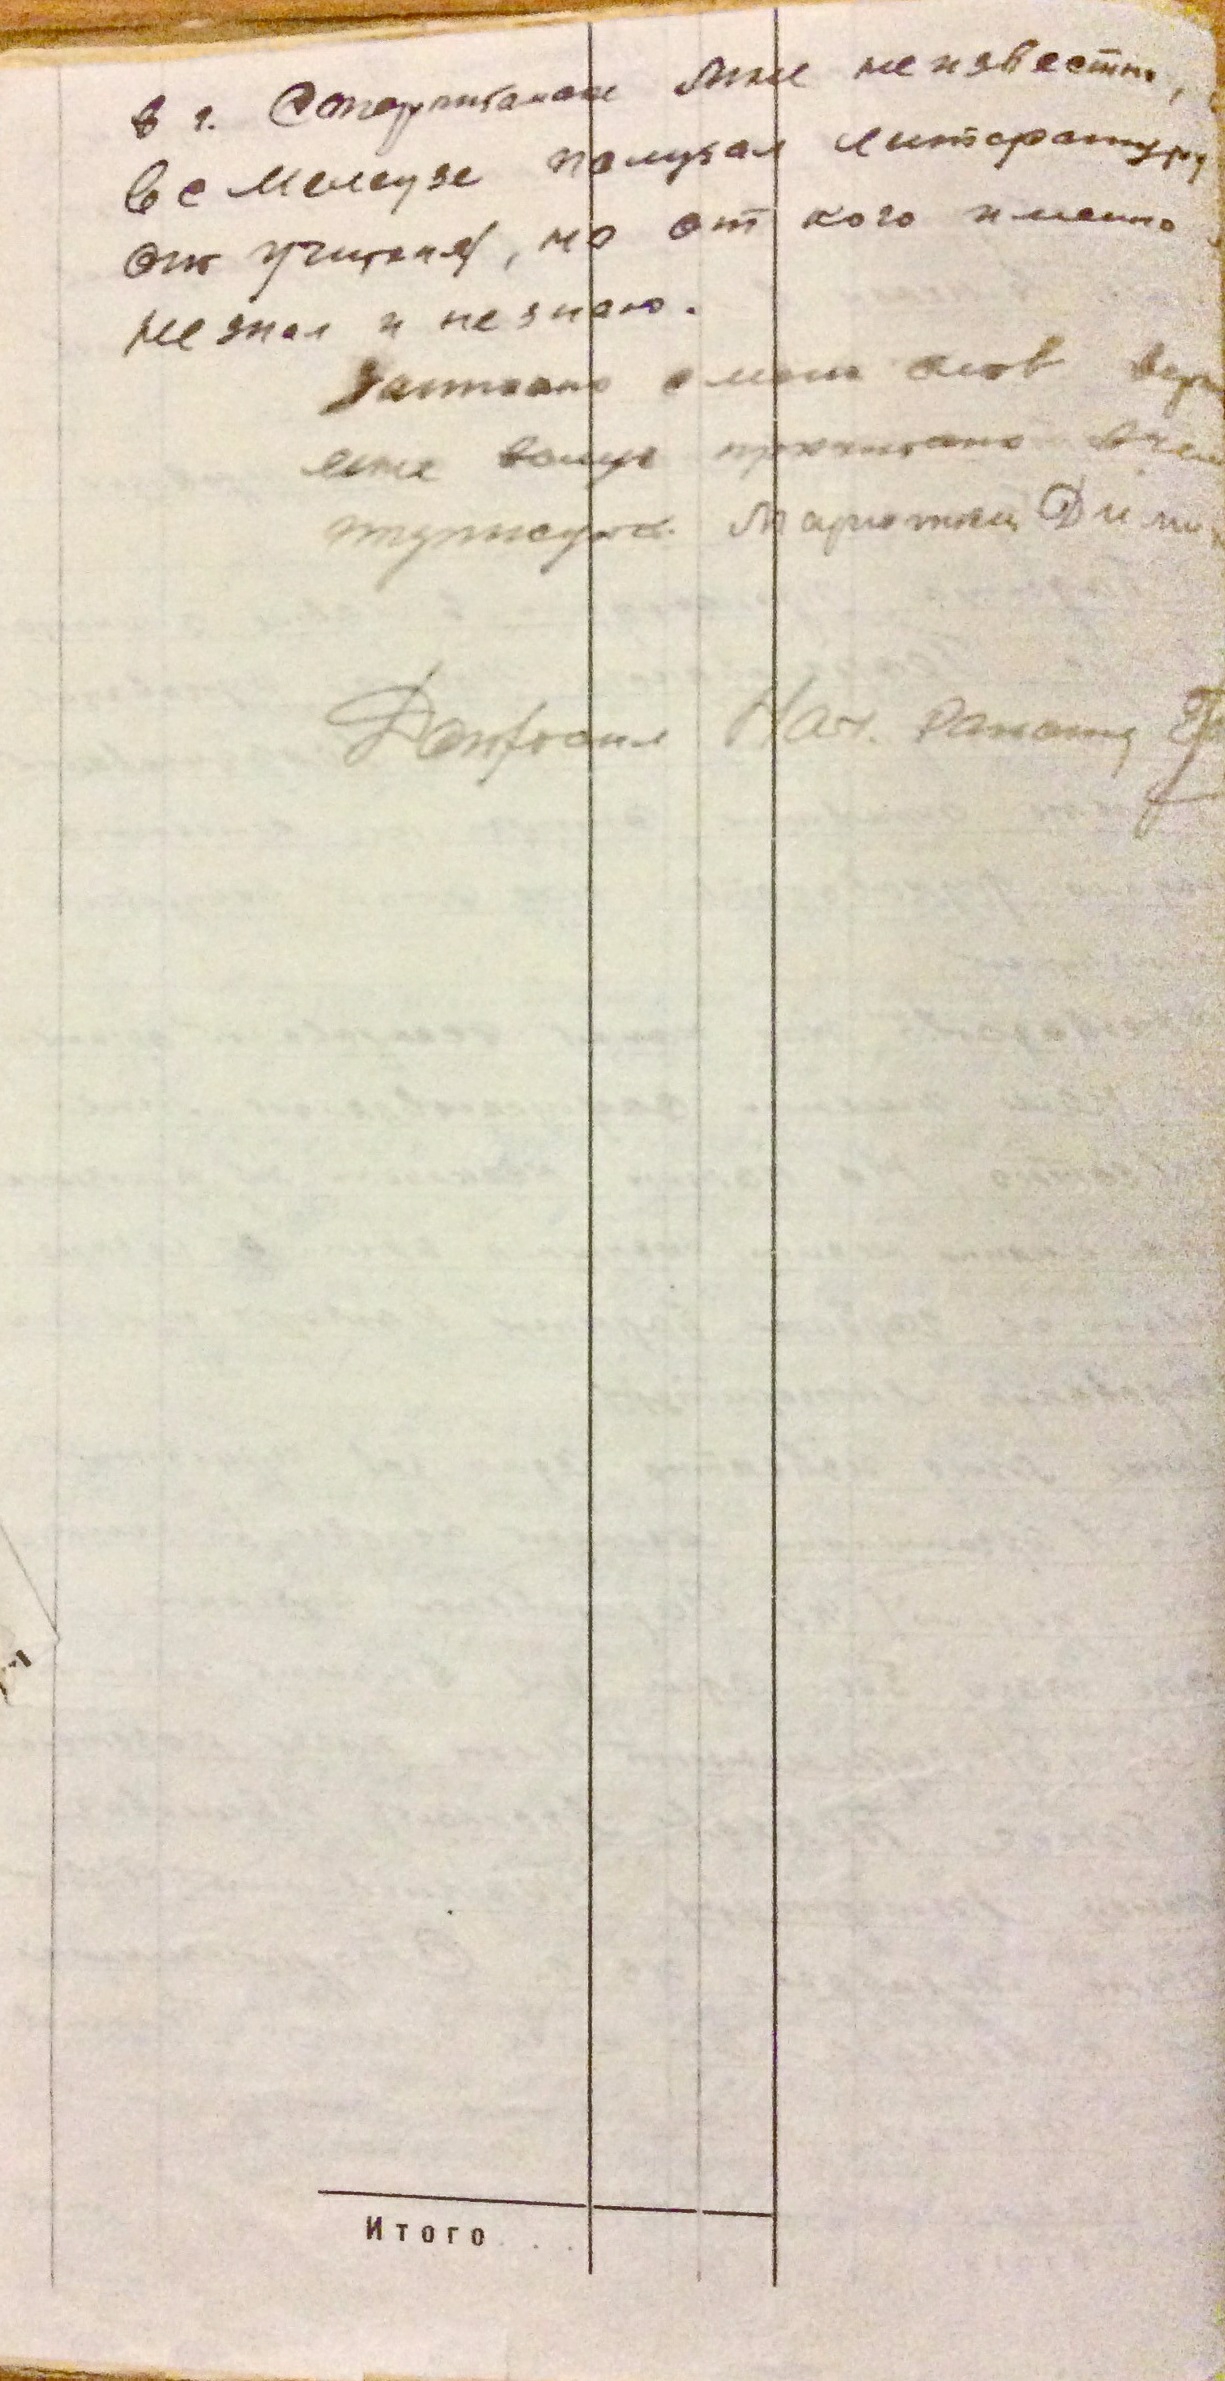 в г. Стерлитамаке мне неизвестно,
в с Мелеузе получал литературу
от учителя, но от кого именно
не знал и не знаю.
Записано с моих слов вер
мне вслух прочитано в чем
Дим
Допросил Нач.
Итого . . .